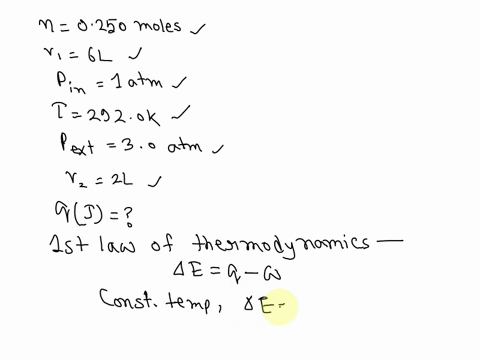 n = 0.250 moles ✓
v₁ = 6L ✓
Pin = 1 atm ✓
T = 292.0K ✓
Pext = 3.0 atm ✓
v₂ = 2L ✓
q(J) = ?
1st law of thermodynamics —
ΔE = q - w
Const. temp, ΔE -